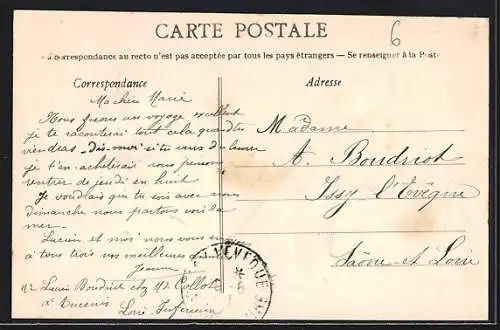 CARTE POSTALE
6
correspondance au recto n'est pas acceptée par tous les pays étrangers — Se renseigner à la Poste
Correspondance
Adresse
Ma chère Marie
Nous faisons un voyage
je te raconterai tout cela quand tu
viendras dis-moi si tu veux du beurre
je t'en achèterai nous pensons
rentrer de jeudi en huit
Je voudrais que tu sois avec nous
dimanche nous partons voir la
mer
Lucien et moi nous vous
à tous trois nos meilleures
Jeanne
Mr Lucien Boudriot chez Mr Collot
à Ancenis
Loire Inférieure
Madame
A. Boudriot
Issy l'Evêque
Saône et Loire
L'EVEQUE